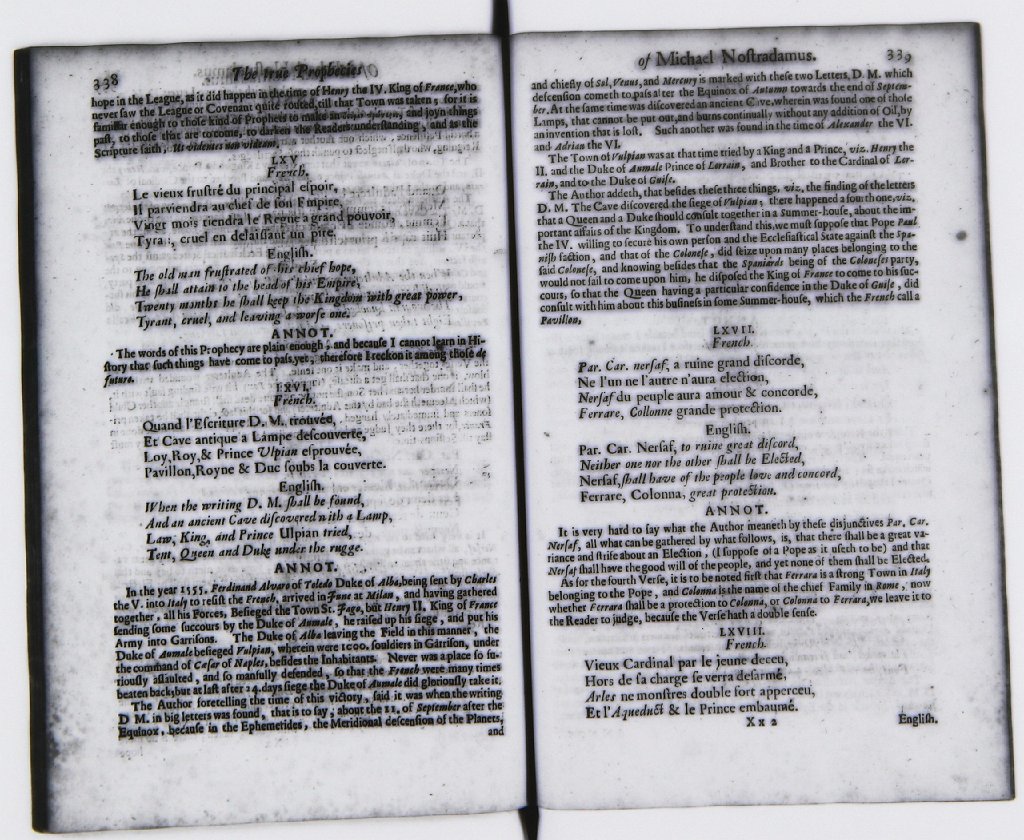 338
The true Prophecies
hope in the League, as it did happen in the time of Henry the IV. King of France, who
never saw the League or Covenant quite routed, till that Town was taken; for it is
familiar enough to those kind of Prophets to make an and joyn things
past, to those that are to come, to darken the Readers understanding, and as the
Scripture saith, Ut videntes non videant.
LXV.
French.
Le vieux frustré du principal espoir,
Il parviendra au chef de son Empire,
Vingt mois tiendra le Regne a grand pouvoir,
Tyran, cruel en delaissant un pire.
English.
The old man frustrated of his chief hope,
He shall attain to the head of his Empire,
Twenty months he shall keep the Kingdom with great power,
Tyrant, cruel, and leaving a worse one.
ANNOT.
The words of this Prophecy are plain enough; and because I cannot learn in Hi-
story that such things have come to pass yet, therefore I reckon it among those de
futuro.
LXVI.
French.
Quand l'Escriture D. M. trouvée,
Et Cave antique a Lampe descouverte,
Loy, Roy, & Prince Ulpian esprouvée,
Pavillon, Royne & Duc soubs la couverte.
English.
When the writing D. M. shall be found,
And an ancient Cave discovered with a Lamp,
Law, King, and Prince Ulpian tried,
Tent, Queen and Duke under the rugge.
ANNOT.
In the year 1555. Ferdinand Alvaro of Toledo Duke of Alba, being sent by Charles
the V. into Italy to resist the French, arrived in June at Milan, and having gathered
together, all his Forces, Besieged the Town St. Jago, but Henry II, King of France
sending some succours by the Duke of Aumale, he raised up his siege, and put his
Army into Garrisons. The Duke of Alba leaving the Field in this manner, the
Duke of Aumale besieged Vulpian, wherein were 1000. souldiers in Garrison, under
the command of Cæsar of Naples, besides the Inhabitants. Never was a place so fu-
riously assaulted, and so manfully defended, so that the French were many times
beaten back, but at last after 24. days siege the Duke of Aumale did gloriously take it.
The Author foretelling the time of this victory, said it was when the writing
D M. in big letters was found, that is to say, about the 22. of September after the
Equinox, because in the Ephemerides, the Meridional descension of the Planets,
and
of Michael Nostradamus.
339
and chiefly of Sol, Venus, and Mercury is marked with these two Letters, D. M. which
descension cometh to pass after the Equinox of Autumn towards the end of Septem-
ber. At the same time was discovered an ancient Cave, wherein was found one of those
Lamps, that cannot be put out, and burns continually without any addition of Oil, by
an invention that is lost. Such another was found in the time of Alexander the VI.
and Adrian the VI.
The Town of Vulpian was at that time tried by a King and a Prince, viz. Henry the
II. and the Duke of Aumale Prince of Lorrain, and Brother to the Cardinal of Lor-
rain, and to the Duke of Guise.
The Author addeth, that besides these three things, viz. the finding of the letters
D. M. The Cave discovered the siege of Vulpian; there happened a fourth one, viz.
that a Queen and a Duke should consult together in a Summer-house, about the im-
portant affairs of the Kingdom. To understand this, we must suppose that Pope Paul
the IV. willing to secure his own person and the Ecclesiastical State against the Spa-
nish faction, and that of the Colonese, did seize upon many places belonging to the
said Colonese, and knowing besides that the Spaniards being of the Coloneses party,
would not fail to come upon him, he disposed the King of France to come to his suc-
cours, so that the Queen having a particular confidence in the Duke of Guise, did
consult with him about this business in some Summer-house, which the French call a
Pavilion,
LXVII.
French.
Par. Car. nersaf, a ruine grand discorde,
Ne l'un ne l'autre n'aura election,
Nersaf du peuple aura amour & concorde,
Ferrare, Collonne grande protection.
English.
Par. Car. Nersaf, to ruine great discord,
Neither one nor the other shall be Elected,
Nersaf, shall have of the people love and concord,
Ferrare, Colonna, great protection.
ANNOT.
It is very hard to say what the Author meaneth by these disjunctives Par. Car.
Nersaf, all what can be gathered by what follows, is, that there shall be a great va-
riance and strife about an Election, (I suppose of a Pope as it useth to be) and that
Nersaf shall have the good will of the people, and yet none of them shall be Elected.
As for the fourth Verse, it is to be noted first that Ferrara is a strong Town in Italy
belonging to the Pope, and Colonna is the name of the chief Family in Rome, now
whether Ferrara shall be a protection to Colonna, or Colonna to Ferrara, we leave it to
the Reader to judge, because the Verse hath a double sense.
LXVIII.
French.
Vieux Cardinal par le jeune deceu,
Hors de sa charge se verra desarmé,
Arles ne monstres double fort apperceu,
Et l'Aqueduct & le Prince embaumé.
Xx 2
English.